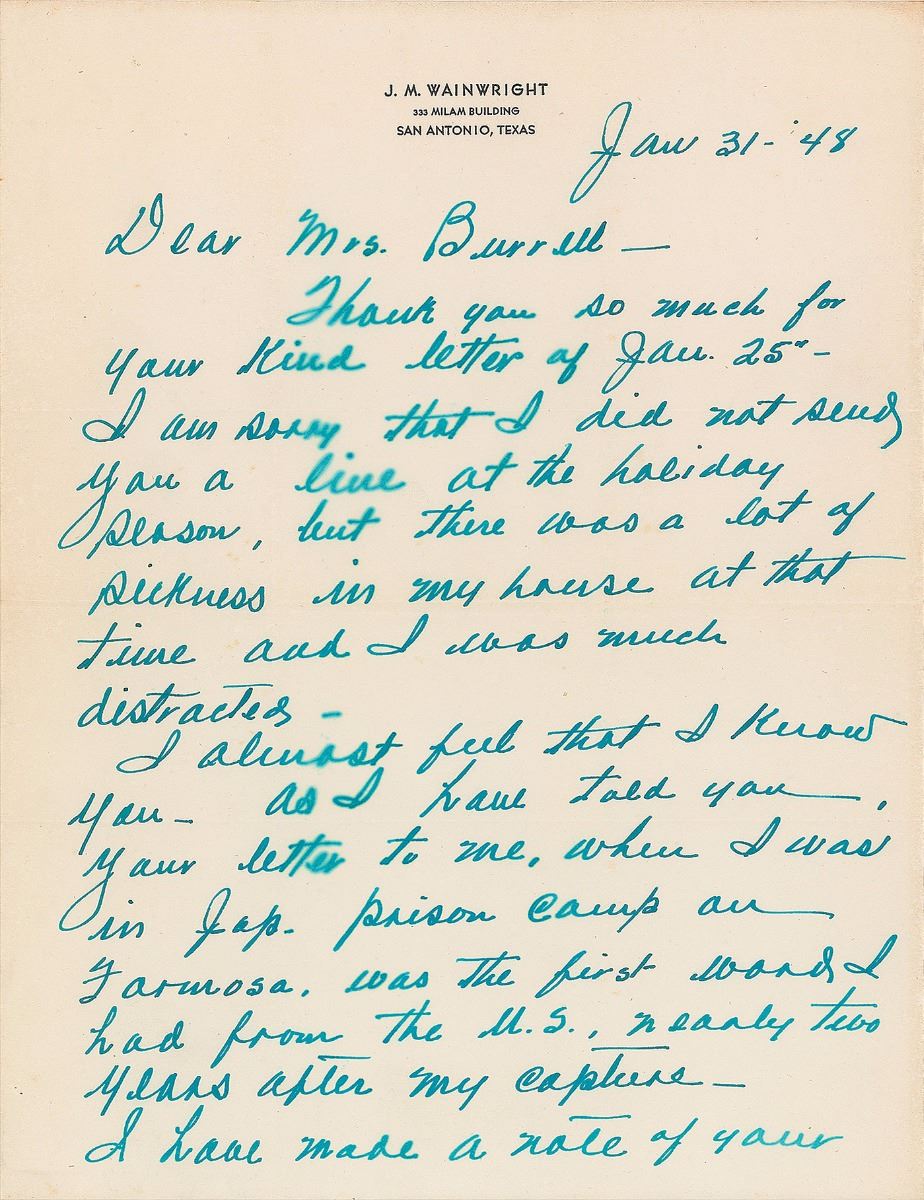 J. M. WAINWRIGHT
333 MILAM BUILDING
SAN ANTONIO, TEXAS
Jan 31-'48
Dear Mrs. Burrell —
Thank you so much for
your kind letter of Jan. 25" -
I am sorry that I did not send
you a line at the holiday
season, but there was a lot of
sickness in my house at that
time and I was much
distracted -
I almost feel that I know
you - As I have told you,
your letter to me, when I was
in Jap. prison camp on
Formosa, was the first word I
had from the U.S., nearly two
years after my capture -
I have made a note of your